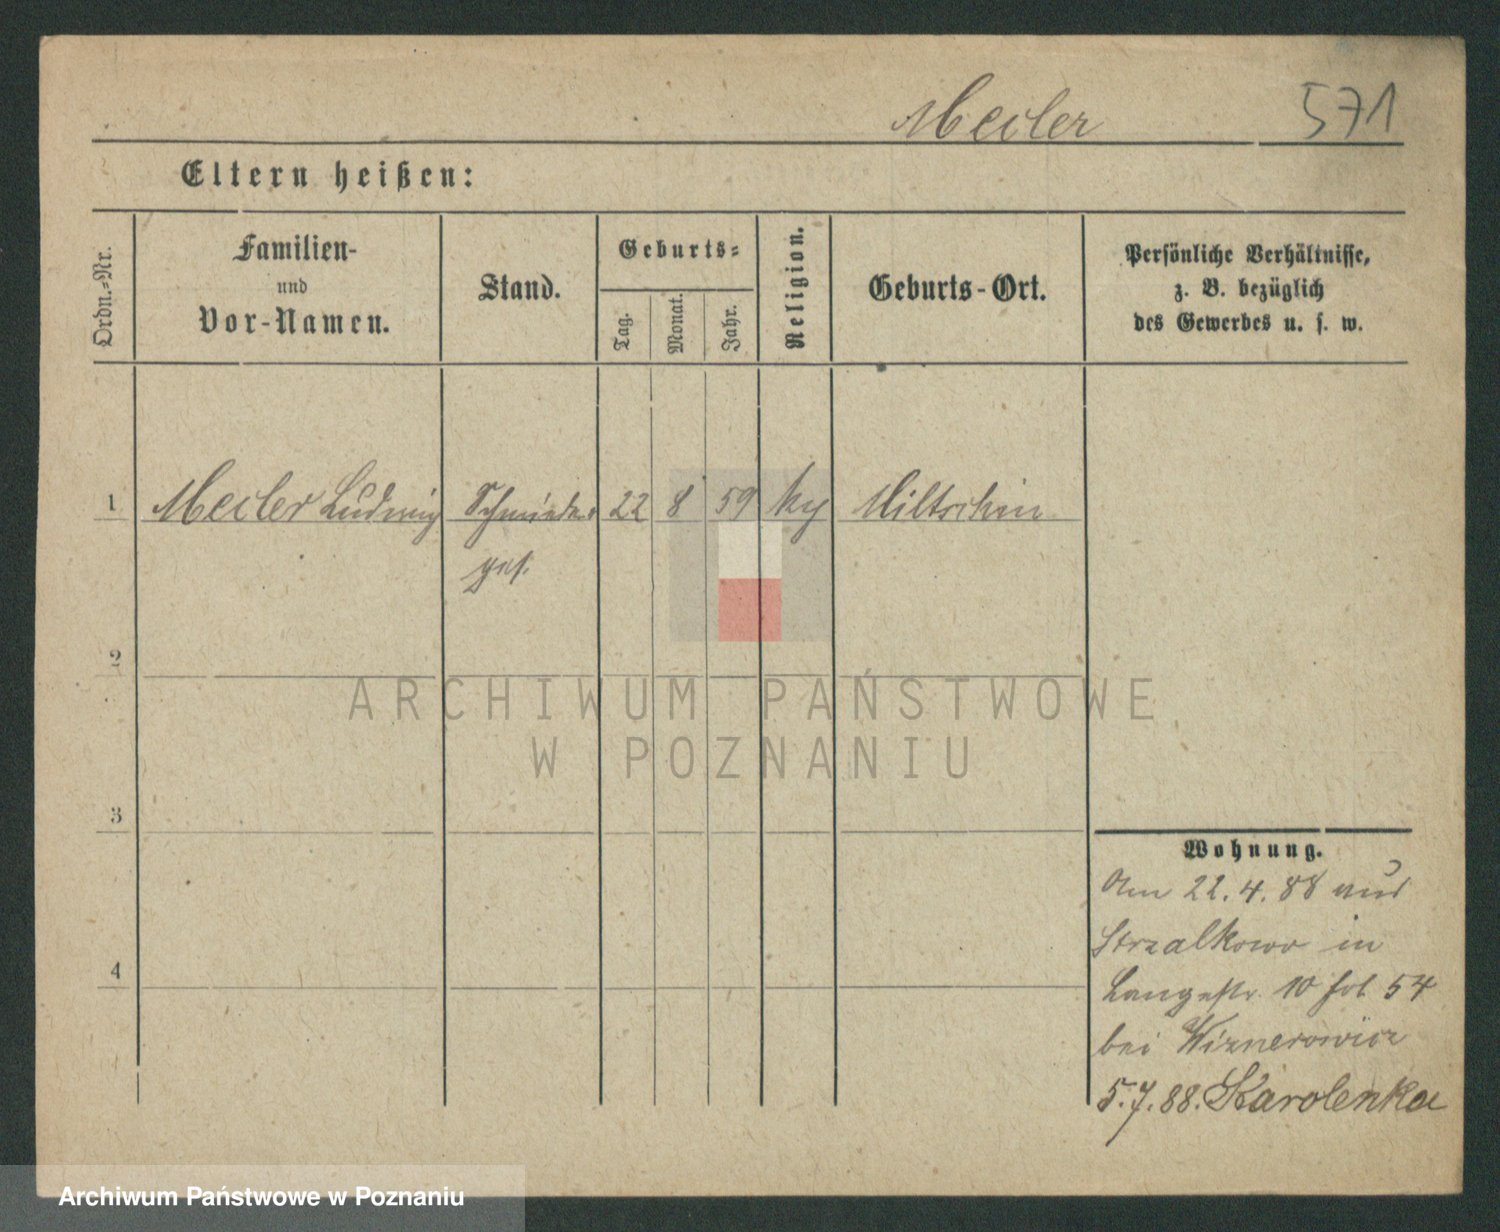 Meiler 571
Eltern heißen:
Ordn.-Nr.
Familien-
und
Vor-Namen.
Stand.
Geburts-
Tag.
Monat.
Jahr.
Religion.
Geburts-Ort.
Persönliche Verhältnisse,
z. B. bezüglich
des Gewerbes u. s. w.
1 Meiler Ludwig Schmiede- 22 8 59 Miltschin
ges.
2
ARCHIWUM PAŃSTWOWE
W POZNANIU
3
Wohnung.
Am 22.4.88 aus
Strzalkowo in
Langestr. 10 54
bei
5.7.88. Karolenka
4
Archiwum Państwowe w Poznaniu